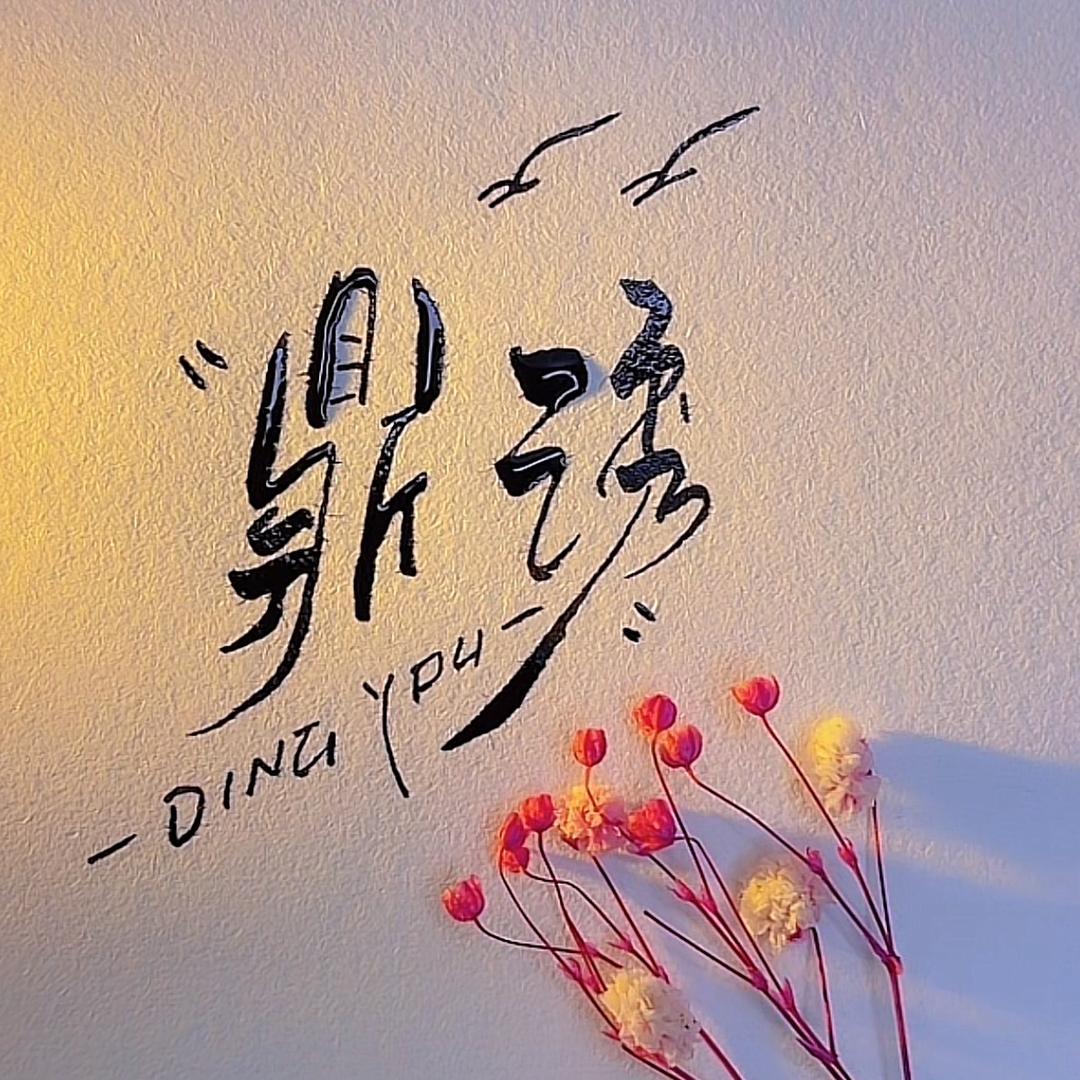 "鼎诱"
- DING YOU -